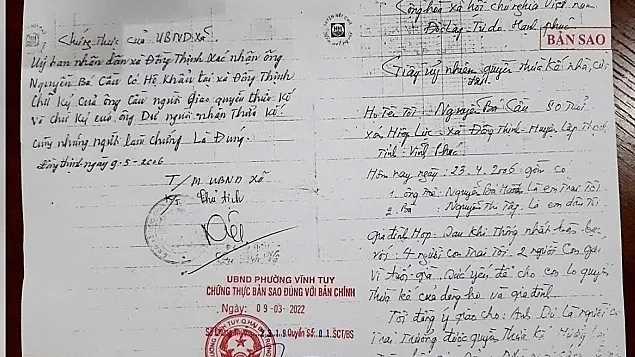 Chứng thực của UBND xã.
Uỷ ban nhân dân xã Đồng Thịnh xác nhận ông
Nguyễn Bá Cầu có Hộ Khẩu tại xã Đồng Thịnh
Chữ Ký của ông Cầu người giao quyền thừa kế
và chữ ký của ông Dư người nhận Thừa kế.
cùng những người làm chứng Là Đúng.
Đồng Thịnh ngày 9-5-2006
T/M UBND xã
chủ tịch
UBND PHƯỜNG VĨNH TUY
CHỨNG THỰC BẢN SAO ĐÚNG VỚI BẢN CHÍNH
Ngày: 09-03-2022
Quyển Số: 01 SCT/BS
Cộng hoà xã hội chủ nghĩa Việt nam
Độc lập - Tự do - Hạnh phúc
BẢN SAO
Giấy uỷ nhiệm quyền thừa kế nhà,
Họ Tên Tôi: Nguyễn Bá Cầu 80 Tuổi
Xã Đồng Thịnh - Huyện Lập Thạch
Tỉnh Vĩnh Phúc
Hôm nay ngày: 23.4.2006 gồm có
1. ông Nguyễn Bá Là em Trai Tôi
2. Bà: Nguyễn Thị Là em dâu Tôi
Gia đình Họp. Sau khi Thống nhất bàn bạc
với: 4 người con Trai Tôi. 2 người Con gái
Vì Tuổi già. Sức yếu, để cho con lo quyền
Thừa kế của dòng họ và gia đình
Tôi đồng ý giao cho: Anh Dư Là người con
Trai Trưởng được quyền Thừa kế